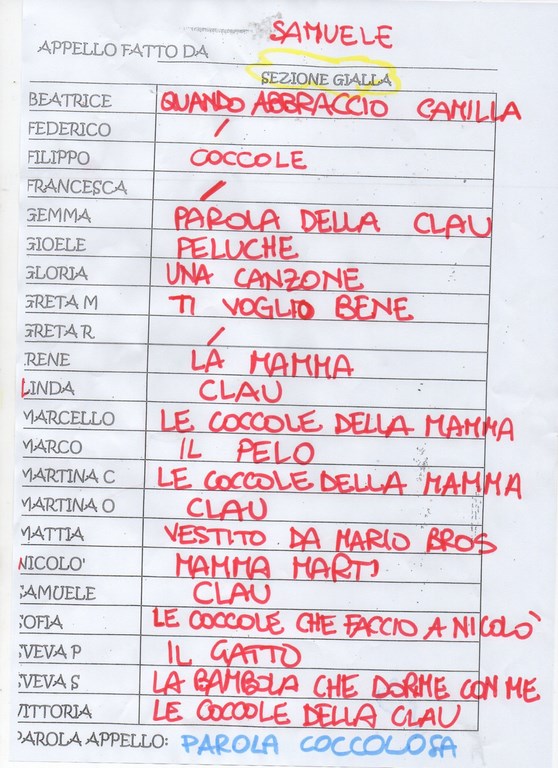 APPELLO FATTO DA SAMUELE
SEZIONE GIALLA
BEATRICE QUANDO ABBRACCIO CAMILLA
FEDERICO /
FILIPPO COCCOLE
FRANCESCA /
GEMMA PAROLA DELLA CLAU
GIOELE PELUCHE
GLORIA UNA CANZONE
GRETA M TI VOGLIO BENE
GRETA R /
RENE LA MAMMA
LINDA CLAU
MARCELLO LE COCCOLE DELLA MAMMA
MARCO IL PELO
MARTINA C LE COCCOLE DELLA MAMMA
MARTINA O CLAU
MATTIA VESTITO DA MARIO BROS
NICOLO' MAMMA MARTI
SAMUELE CLAU
SOFIA LE COCCOLE CHE FACCIO A NICOLÒ
SVEVA P IL GATTO
SVEVA S LA BAMBOLA CHE DORME CON ME
VITTORIA LE COCCOLE DELLA CLAU
PAROLA APPELLO: PAROLA COCCOLOSA